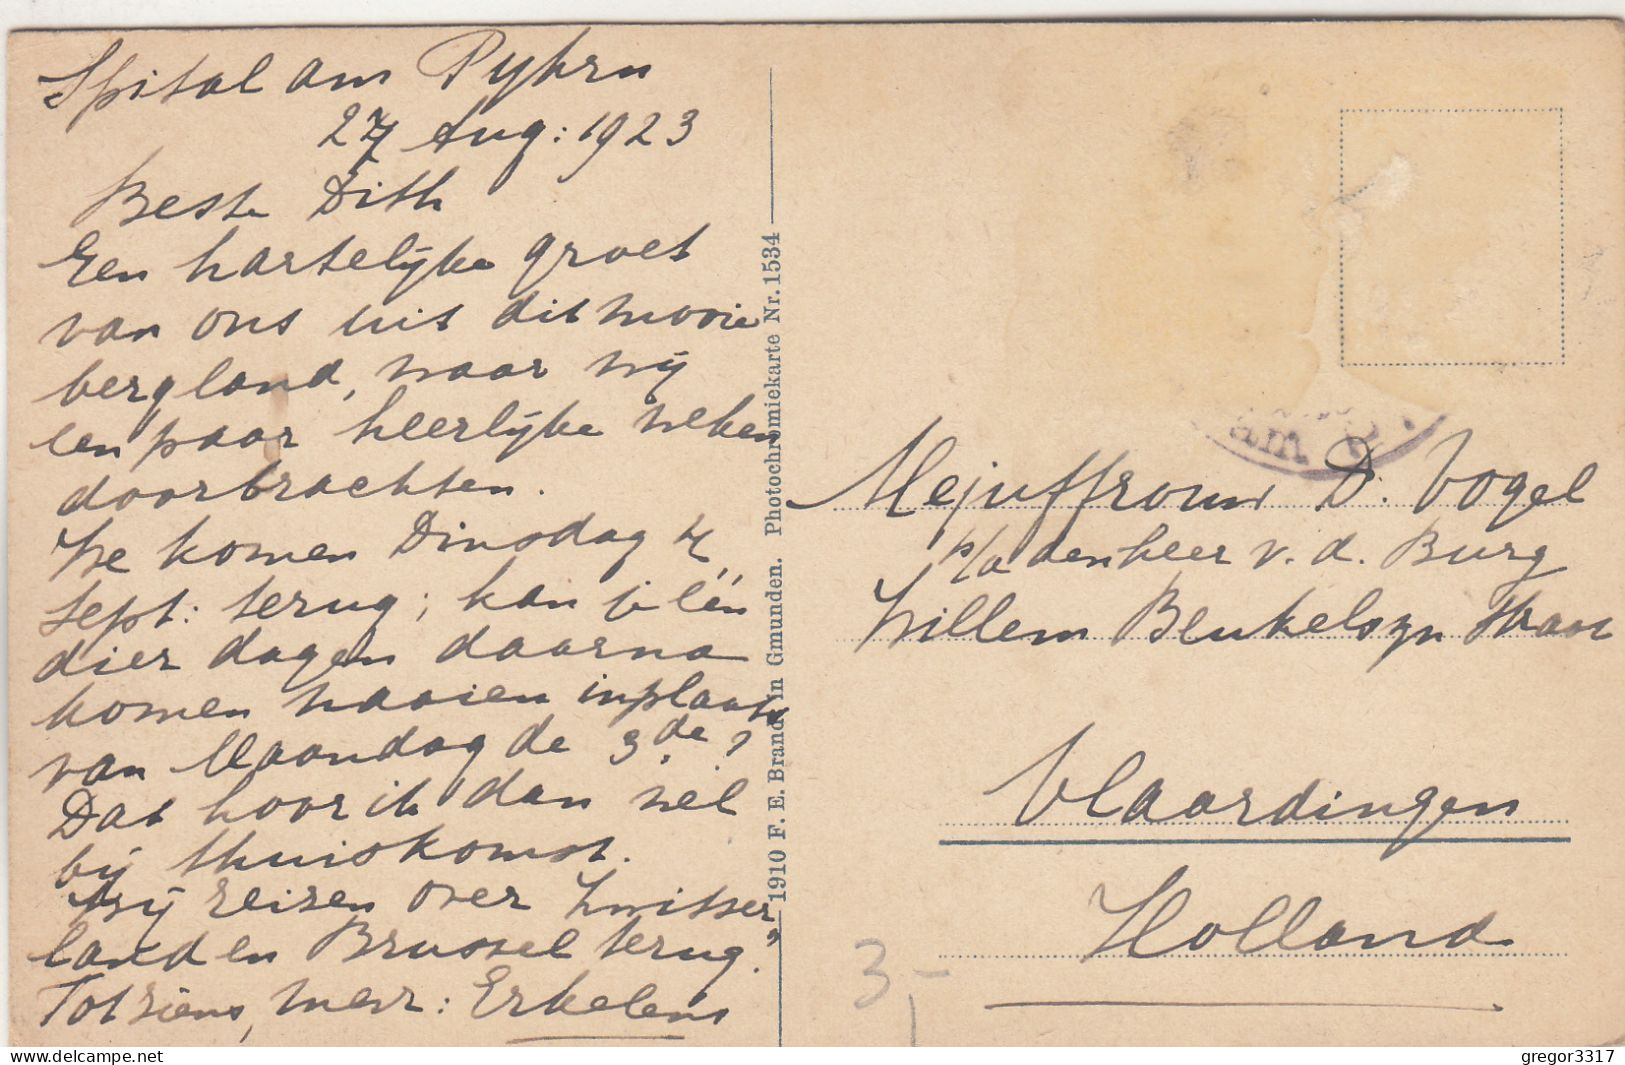 Spital am Pyhrn
27 Aug: 1923
Beste Dith
Een hartelijke groet
van ons uit dit mooie
bergland, waar wij
een paar heerlijke weken
doorbrachten.
We komen Dinsdag 4
Sept: terug; kan je één
dier dagen daarna
komen naaien inplaats
van Maandag de 3de?
Dat hoor ik dan wel
bij thuiskomst.
Wij reizen over Zwitser„
land en Brussel terug.
Tot ziens, mevr: Erkelens
1910 F. E. Brandt in Gmunden. Photochromiekarte Nr. 1534
am P
Mejuffrouw D. Vogel
p/a den heer v. d. Burg
Willem Beukelszn straat
Vlaardingen
Holland
3,-
delcampe.net
gregor3317